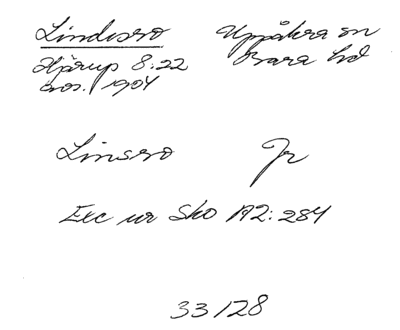 Lindesro Uppåkra sn
Hjärup 8:22 Bara hd
avs. 1904
Linsro Jr
Exc ur Sko A2:284
33/28